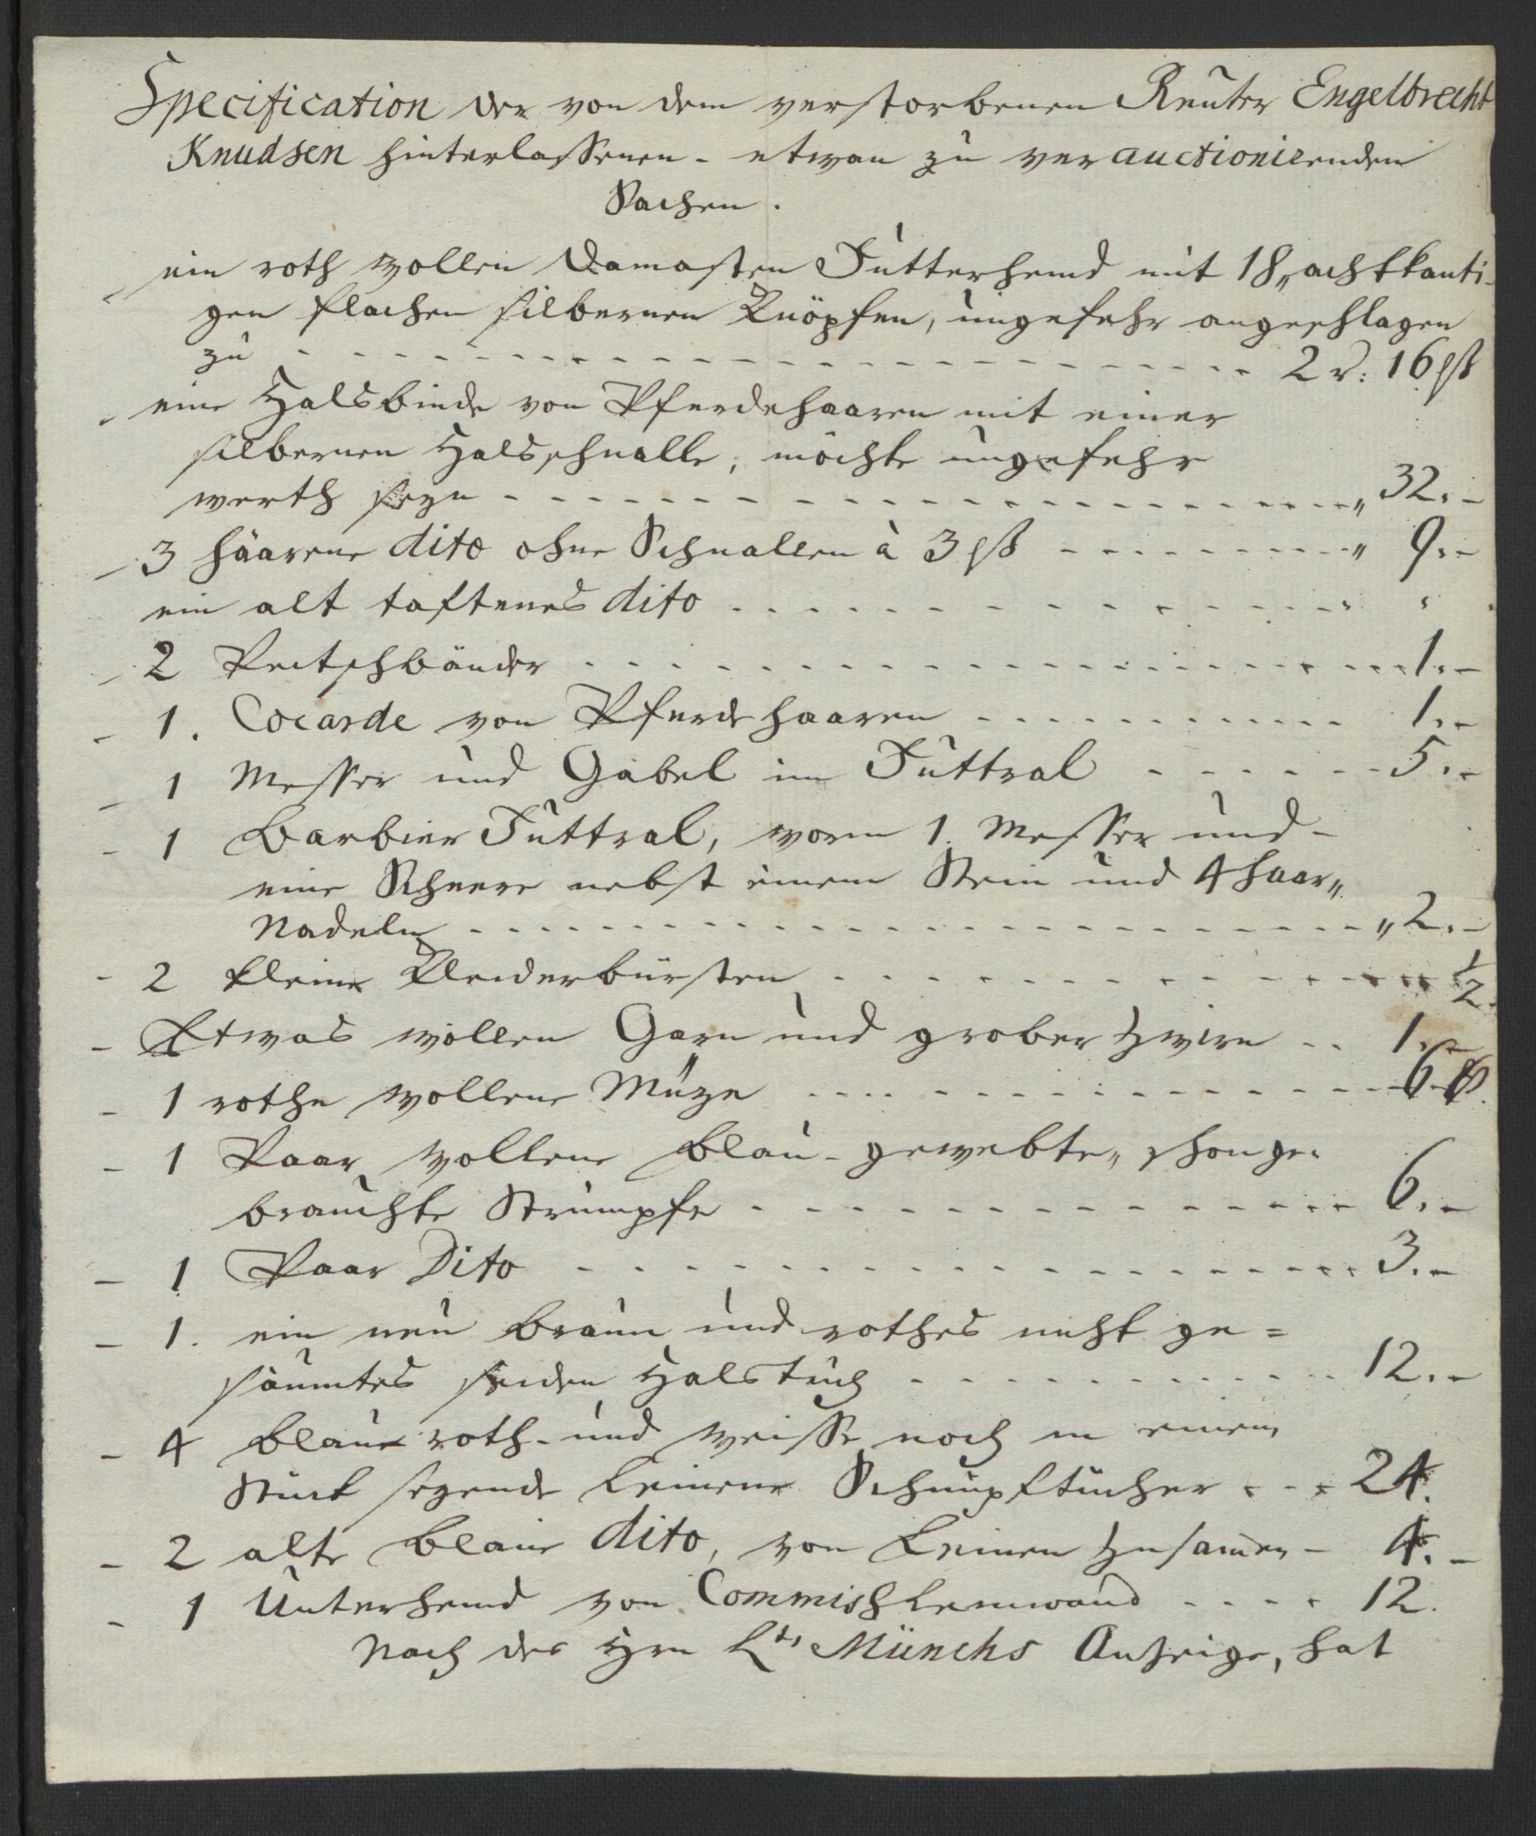 Specification der von dem verstorbenen Reuter Engelbrecht
Knudsen hinterlassenen - etwan zu verauctionirenden
Sachen.
ein roth wollen Damasten Futterhemd mit 18„ achtkanti-
gen flachen silbernen Knöpfen, ungefehr angeschlagen
zu - - - 2 r: 16 ß
eine Halsbinde von Pferdehaaren mit einer
silbernen Halsschnalle, möchte ungefehr
werth seyn - - - „ 32. -
3 häarene dito ohne Schnallen à 3 ß - - - „ 9. -
ein alt taftenes dito - - - „ „
2 Peitschbänder - - - 1. -
1. Cocarde von Pferdehaaren - - - 1. -
1 Messer und Gabel im Futtral - - - 5. -
1 Barbier Futtral, worin 1. Messer und -
eine Scheere nebst einem Stein und 4 Haar„
Nadeln - - - „ 2. -
2 kleine Kleiderbürsten - - - ½.
Etwas wollen Garn und grober Zwirn - - 1. -
1 rothe wollene Müze - - - 6 ß.
1 Paar wollene blau - gewebte„ schon ge-
brauchte Strümpfe - - - 6. -
1 Paar Dito - - - 3. -
1. ein neu braun und rothes nicht ge=
säumtes seiden Halstuch - - - 12. -
4 blaue roth - und weisse noch in einem
Stück seyende leinene Schnupftücher - - - 24.
2 alte blaue dito, von Leinen zusamen - 4. -
1 Unterhemd von Commisch Leinwand - - - - 12.
Nach des Hrn Lts Münchs Anzeige, hat